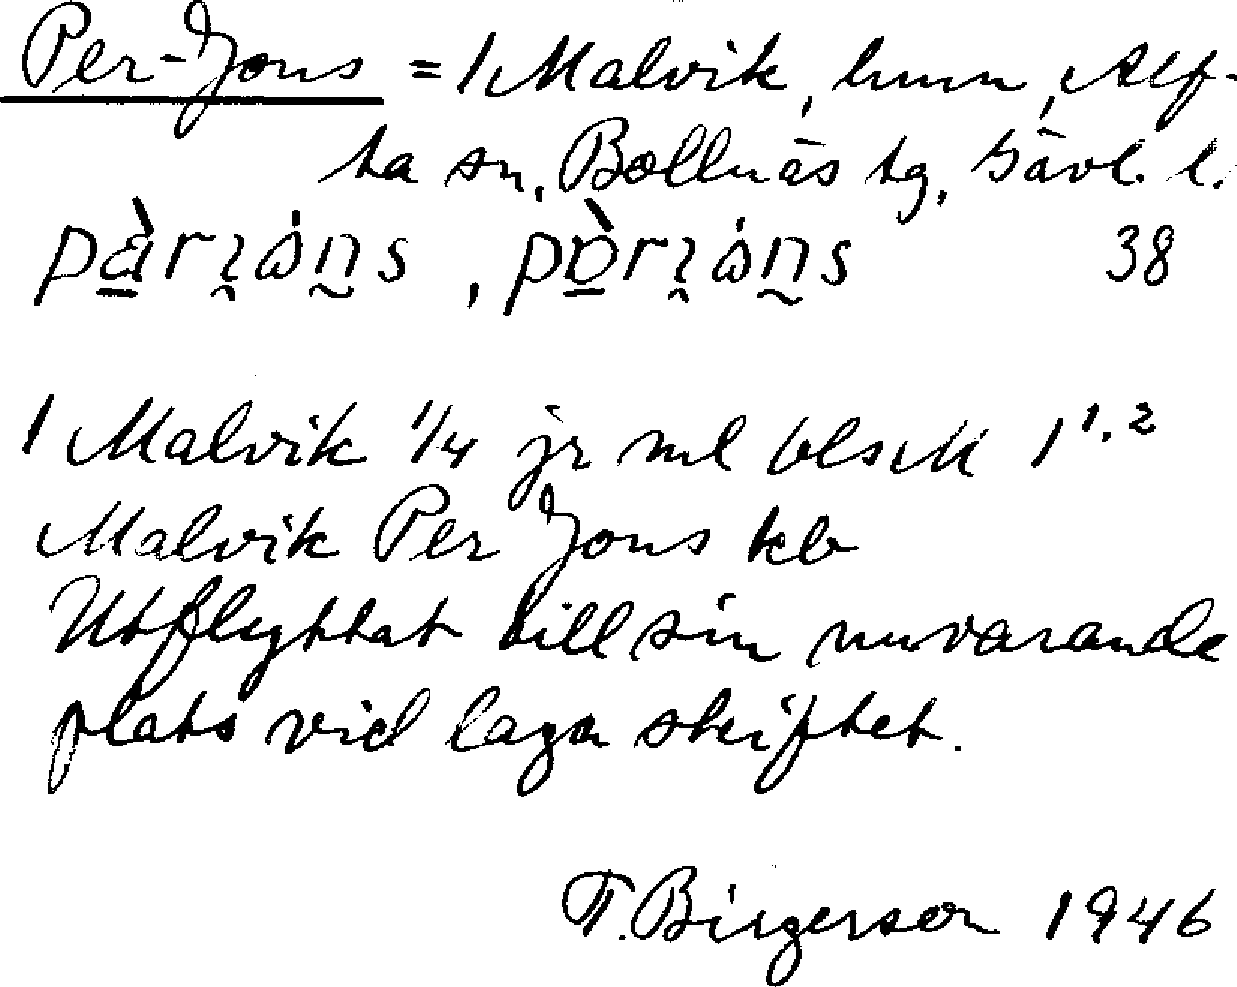 Per-Jons = 1 Malvik, hmn, Alf-
ta sn, Bollnäs tg, Gävl. l.
38
1 Malvik 1/4 jr ml blsM 1 1,2
Malvik Per Jons kb
Utflyttat till sin nuvarande
plats vid laga skiftet.
T. Birgerson 1946